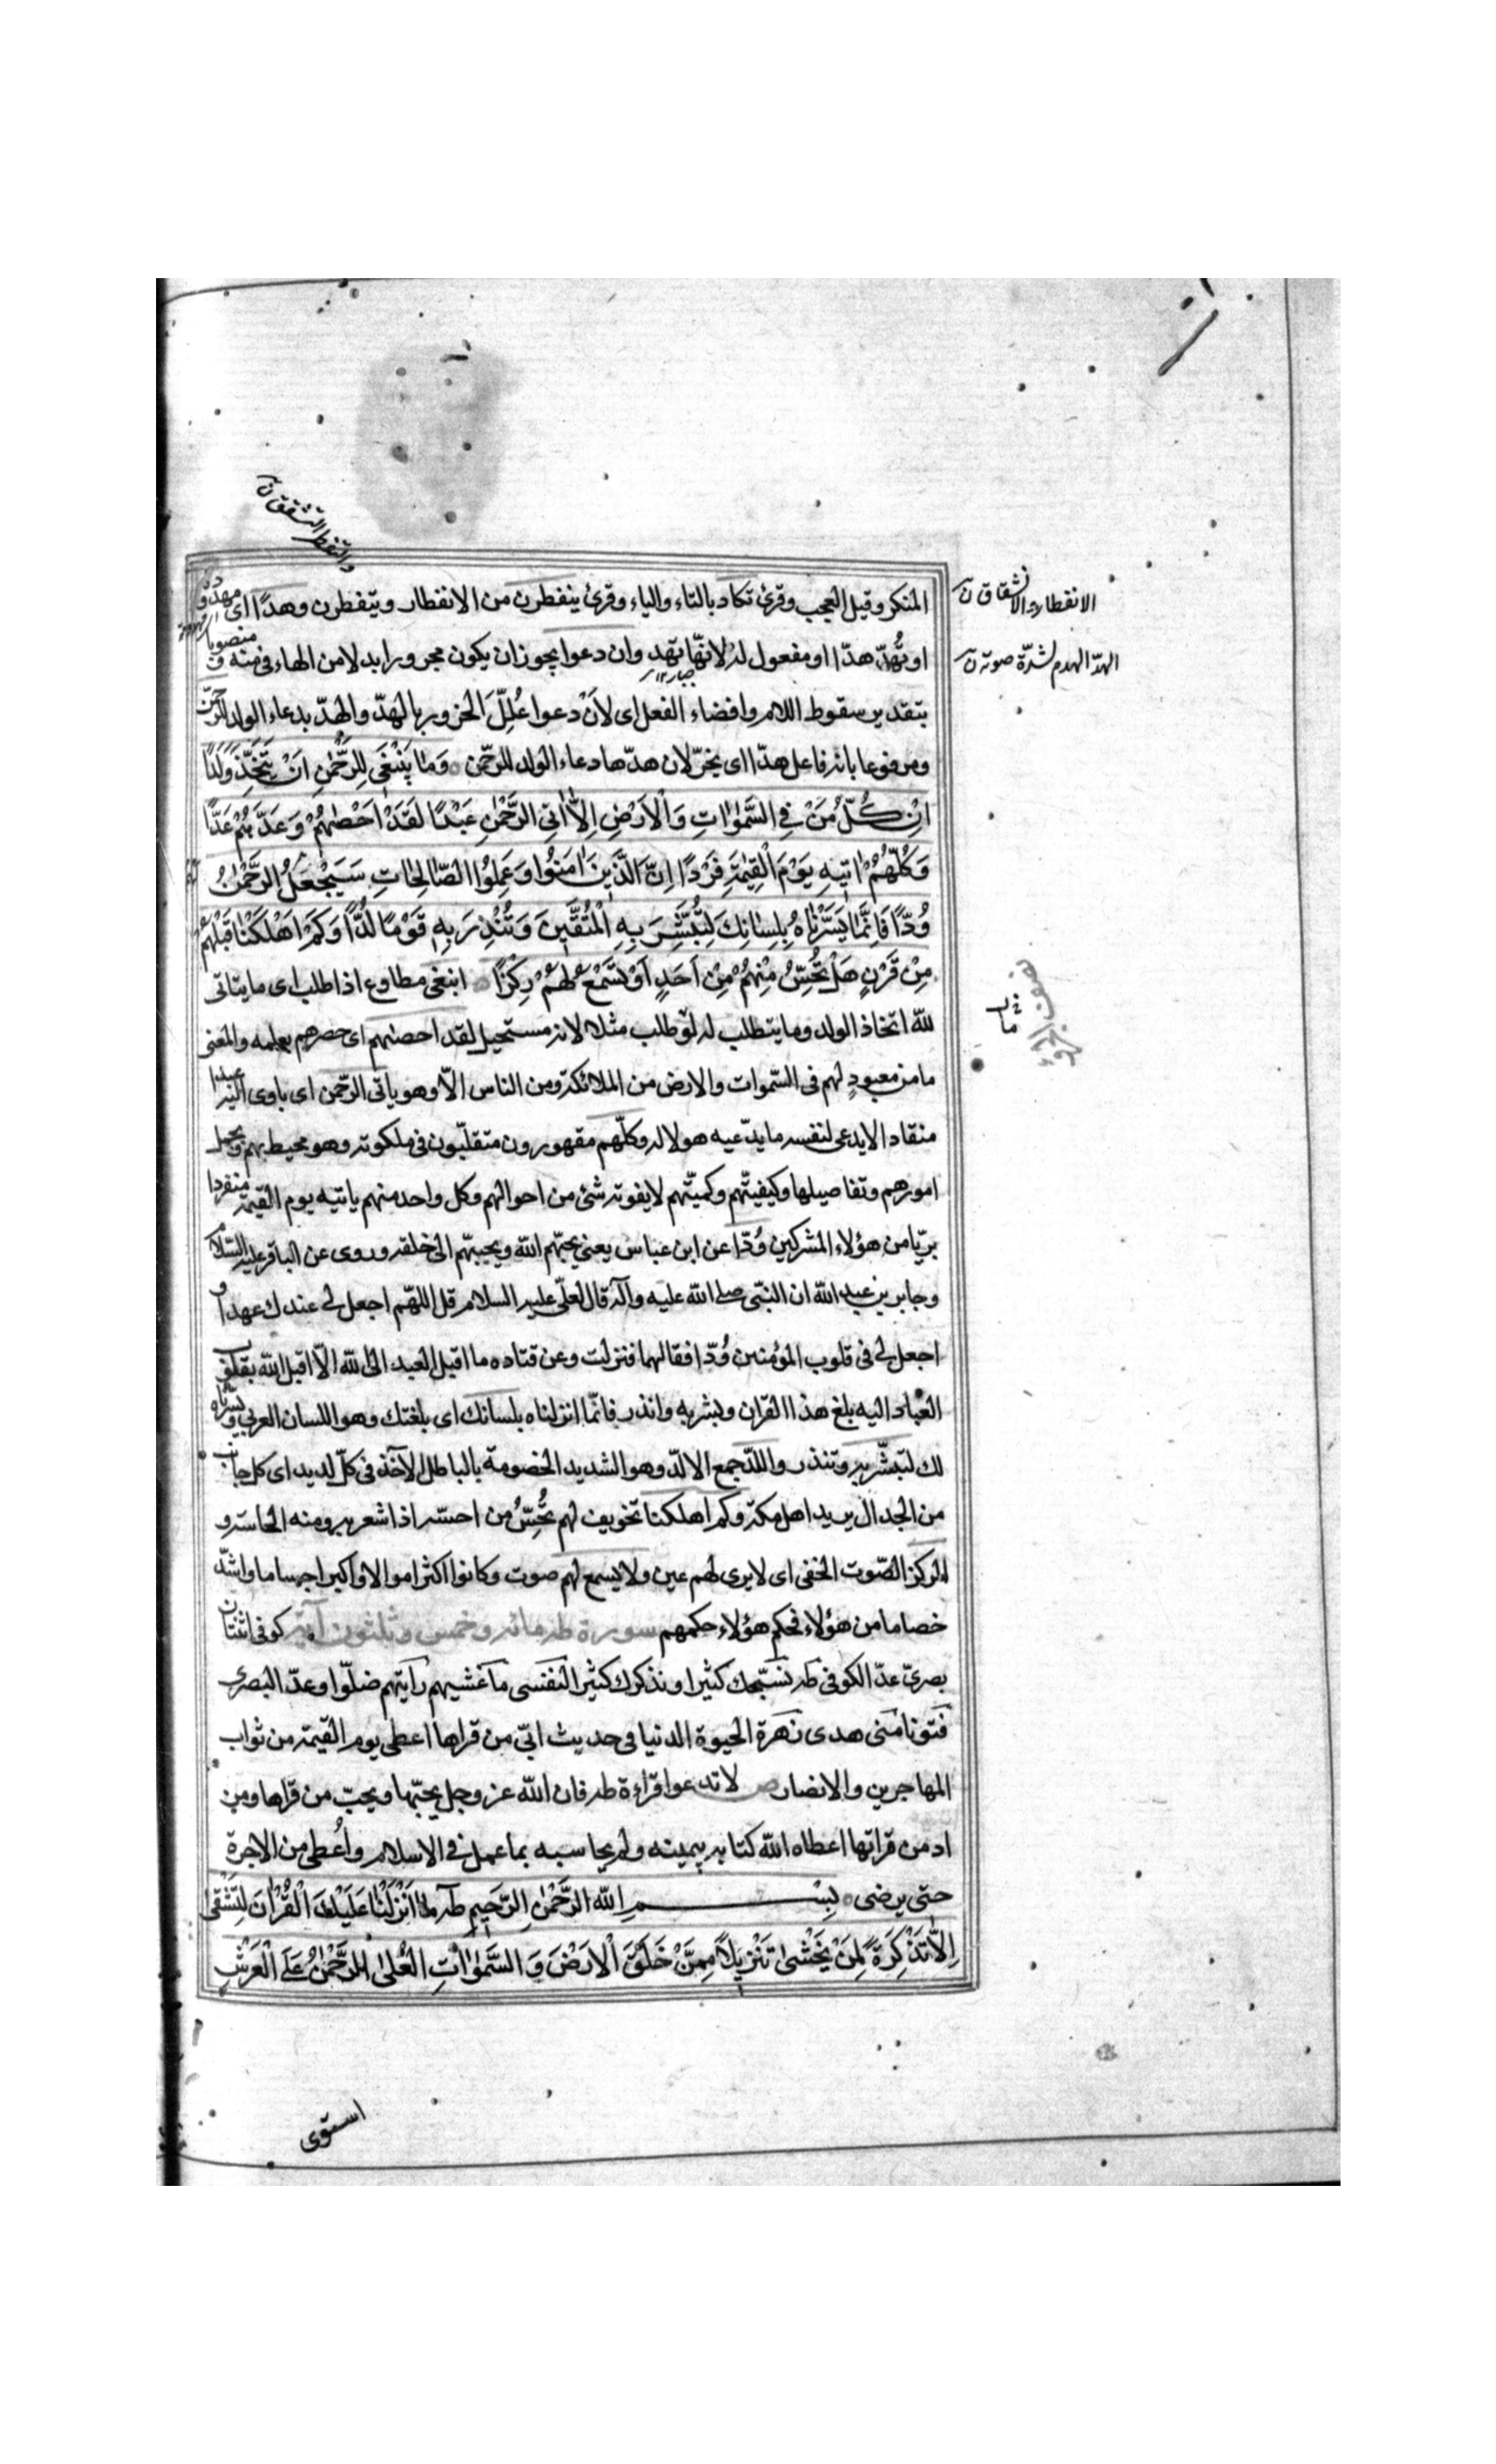 والتفطر التشقق ن
المنكر وقيل العجب وقرئ تكاد بالتاء والياء وقرئ ينفطرن من الانفطار ويتفطرن وهدّا اى مهدودة
الانفطار والانشقاق ن
او تُهدّ هدّا او مفعول له لانهّا تهد وان دعوا يجوز ان يكون مجرورا بدلا من الهاء فى منه و منصوبا
الهدّ الهدم لشدّة صوته ن
بتقدير سقوط اللام وافضاء الفعل اى لاَنْ دعوا عُلِلَّ الخرور بالهدّ والهدّ بدعاء الولد الرّحمن
ومرفوعا بانه فاعل هدّا اى يخرّ لان هدّها دعاء الولد للرّحمن وَمَا يَنْبَغى لِلرَّحْمٰنِ اَنْ يَتَّخِذَ وَلَدًا
اِنْ كُلُّ مَنْ فِى السَّمٰوٰاتِ وَالْاَرْضِ اِلاّٰ اٰتِى الرَّحْمٰنِ عَبْدًا لَقَدْ اَحْصٰيهُمْ وَعَدَّهُمْ عَدًّا
وَكُلُّهُمْ اٰتيهِ يَوْمَ الْقِيٰمَةِ فَرْدًا اِنَّ الَّذينَ اٰمَنُوا وَعَمِلُوا الصّٰالِحٰاتِ سَيَجْعَلُ لَهُمُ الرَّحْمٰنُ
وُدًّا فَاِنَّمٰا يَسَّرْنٰاهُ بِلِسٰانِكَ لِتُبَشِّرَ بِهِ الْمُتَّقينَ وَتُنْذِرَ بِهِ قَوْمًا لُدًّا وَكَمْ اَهْلَكْنٰا قَبْلَهُمْ
مِنْ قَرْنٍ هَلْ تُحِسُّ مِنْهُمْ مِنْ اَحَدٍ اَوْ تَسْمَعُ لَهُمْ رِكْزًا ابنغى مطاوع اذا طلب اى ما يتاتى
لله اتخاذ الولد وما يتطلب له لو طلب مثلا لانه مستحيل لقد احصيهم اى حصرهم بعلمه والمعنى
ما من معبودٍ لهم فى السّموات والارض من الملائكة ومن الناس الاّ وهو ياتى الرّحمن اى ياوى اليه عبدا
منقاد الا يدعى لنفسه ما يدّعيه هولاله وكلّهم مقهورون متقلبّون فى ملكوته وهو محيط بهم وبجمل
امورهم وتفاصيلها وكيفيتّهم وكميّتهم لا يفوته شئ من احوالهم وكل واحد منهم ياتيه يوم القيمة منفردا
بريّا من هؤلاء المشركين وُدّا عن ابن عباس يعنى يحبّهم الله ويحببّهم الى خلقه وروى عن الباقر عليه السّلام
وجابر بن عبد الله ان النبّى صلى الله عليه وآله قال لعلّى عليه السلام قل اللهّم اجعل لى عندك عهدا و
اجعل لى فى قلوب المؤمنين وُدّا فقالهما فنزلت وعن قتاده ما اقبل العبد الى الله الاّ اقبل الله بقلوب
العباد اليه بلغ هذا القران وبشر به وانذر فانّما انزلناه بلسانك اى بلغتك وهو اللسان العربى ويسّرناه
لك لتبشّر به وتنذر واللدّ جمع الالدّ وهو الشديد الخصومة بالباطل الآخذ فى كلّ لديد اى كل جانب
من الجدال يريد اهل مكة وكم اهلكنا تخويف لهم تُحِسُّ من احسّه اذا شعر به ومنه الحاسة و
الركز الصّوت الخفى اى لا يرى لهم عين ولا يسمع لهم صوت وكانوا اكثر اموالا واكبر اجساما واشدّ
خصاما من هؤلاء فحكم هؤلاء حكمهم سورة طه مائه وخمس وثلثون آية كوفى اثنتان
بصرىّ عدّ الكوفى طه نسبّحك كثيرا ونذكرك كثيرا لنفسى ما غشيهم رأيتهم ضلّوا وعدّ البصرى
فتونا منى هدى زهرة الحيوة الدنيا فى حديث ابىّ من قراها اعطى يوم القيمة من ثواب
المهاجرين والانصار ص لا تدعوا قراءة طه فان الله عز وجل يحبّها ويحبّ من قراها ومن
ادمن قراتها اعطاه الله كتابه بيمينه ولم يحاسبه بما عمل فى الاسلام واُعطى من الاجرة
حتى يرضى بِسْمِ اللهِ الرَّحْمٰنِ الرَّحيمِ طٰه مٰا اَنْزَلْنٰا عَلَيْكَ الْقُرْاٰنَ لِتَشْقٰى
اِلاّٰ تَذْكِرَةً لِمَنْ يَخْشىٰ تَنْزيلاً مِمَّنْ خَلَقَ الْاَرْضَ وَ السَّمٰوٰاتِ الْعُلىٰ اَلرَّحْمٰنُ عَلَى الْعَرْشِ
استوى